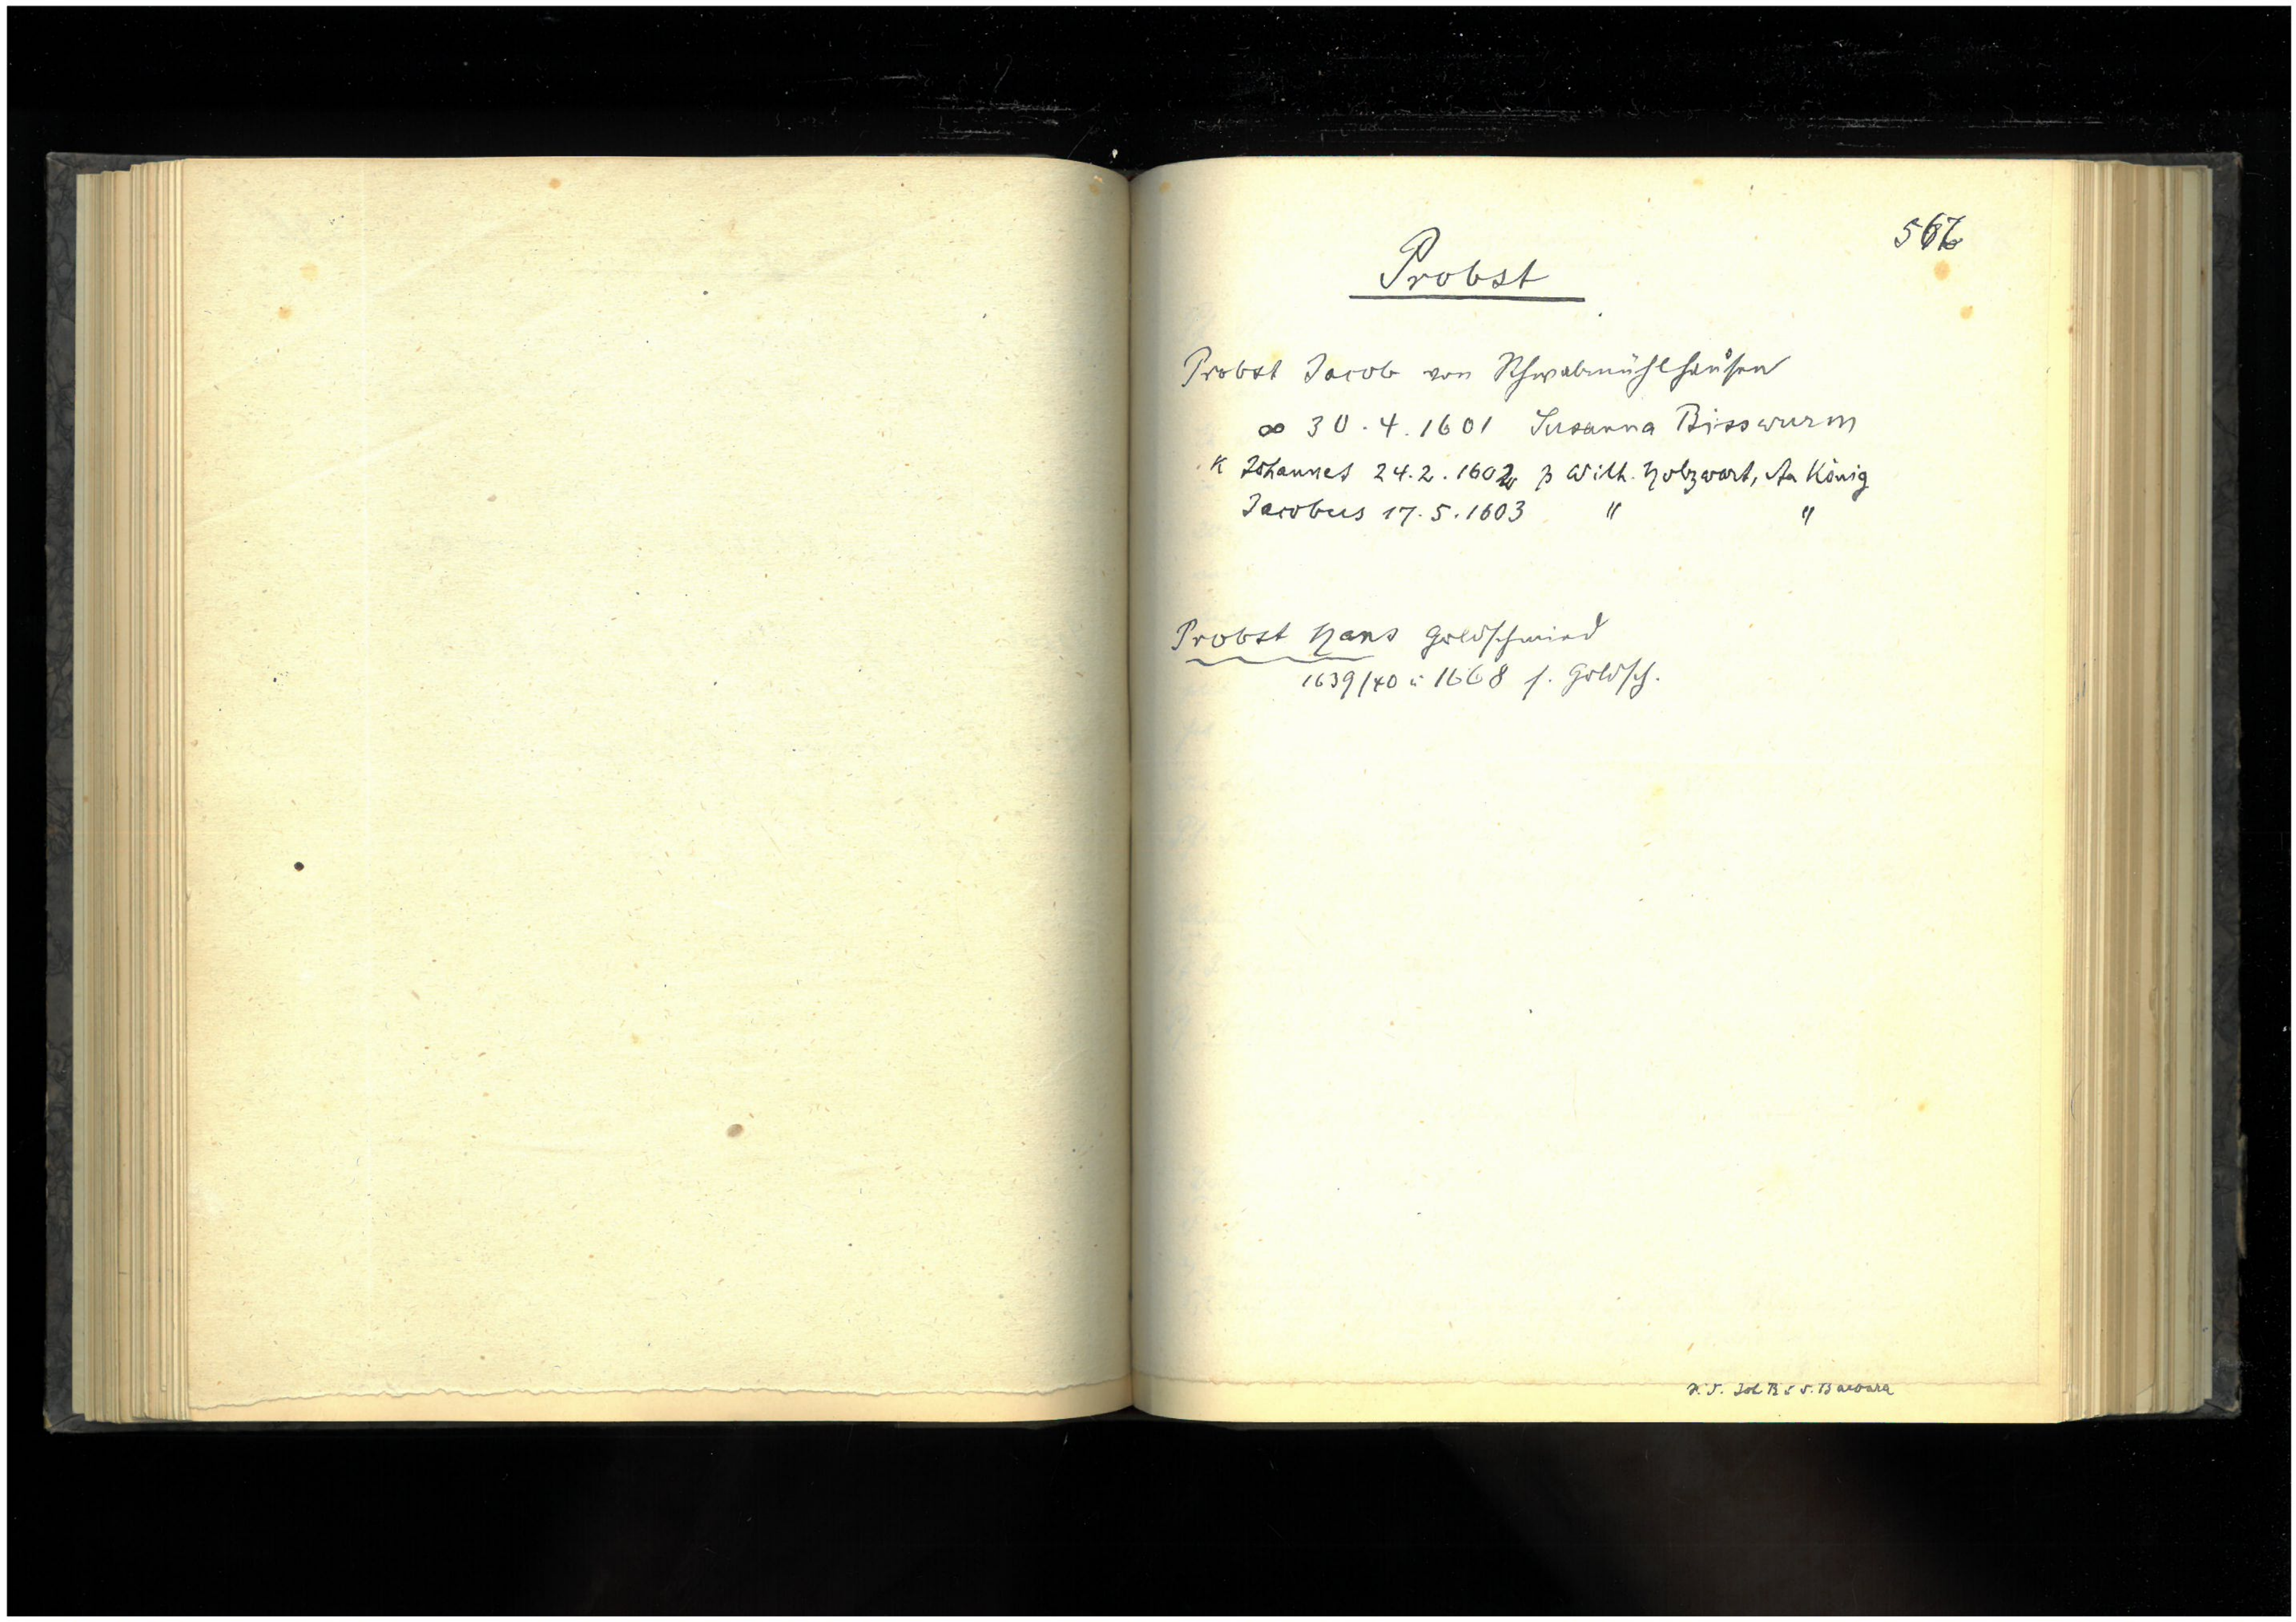 567
Probst
Probst Jacob von Schwabmühlhausen
∞ 30.4.1601 Susanna Bisswurm
K Johannes 24.2.1602 p Wilh. Holzwart, Aa König
Jacobus 17.5.1603 " "
Probst Hans Goldschmied
1639/40 u 1668 s. Goldsch.
Joh B S. Barbara